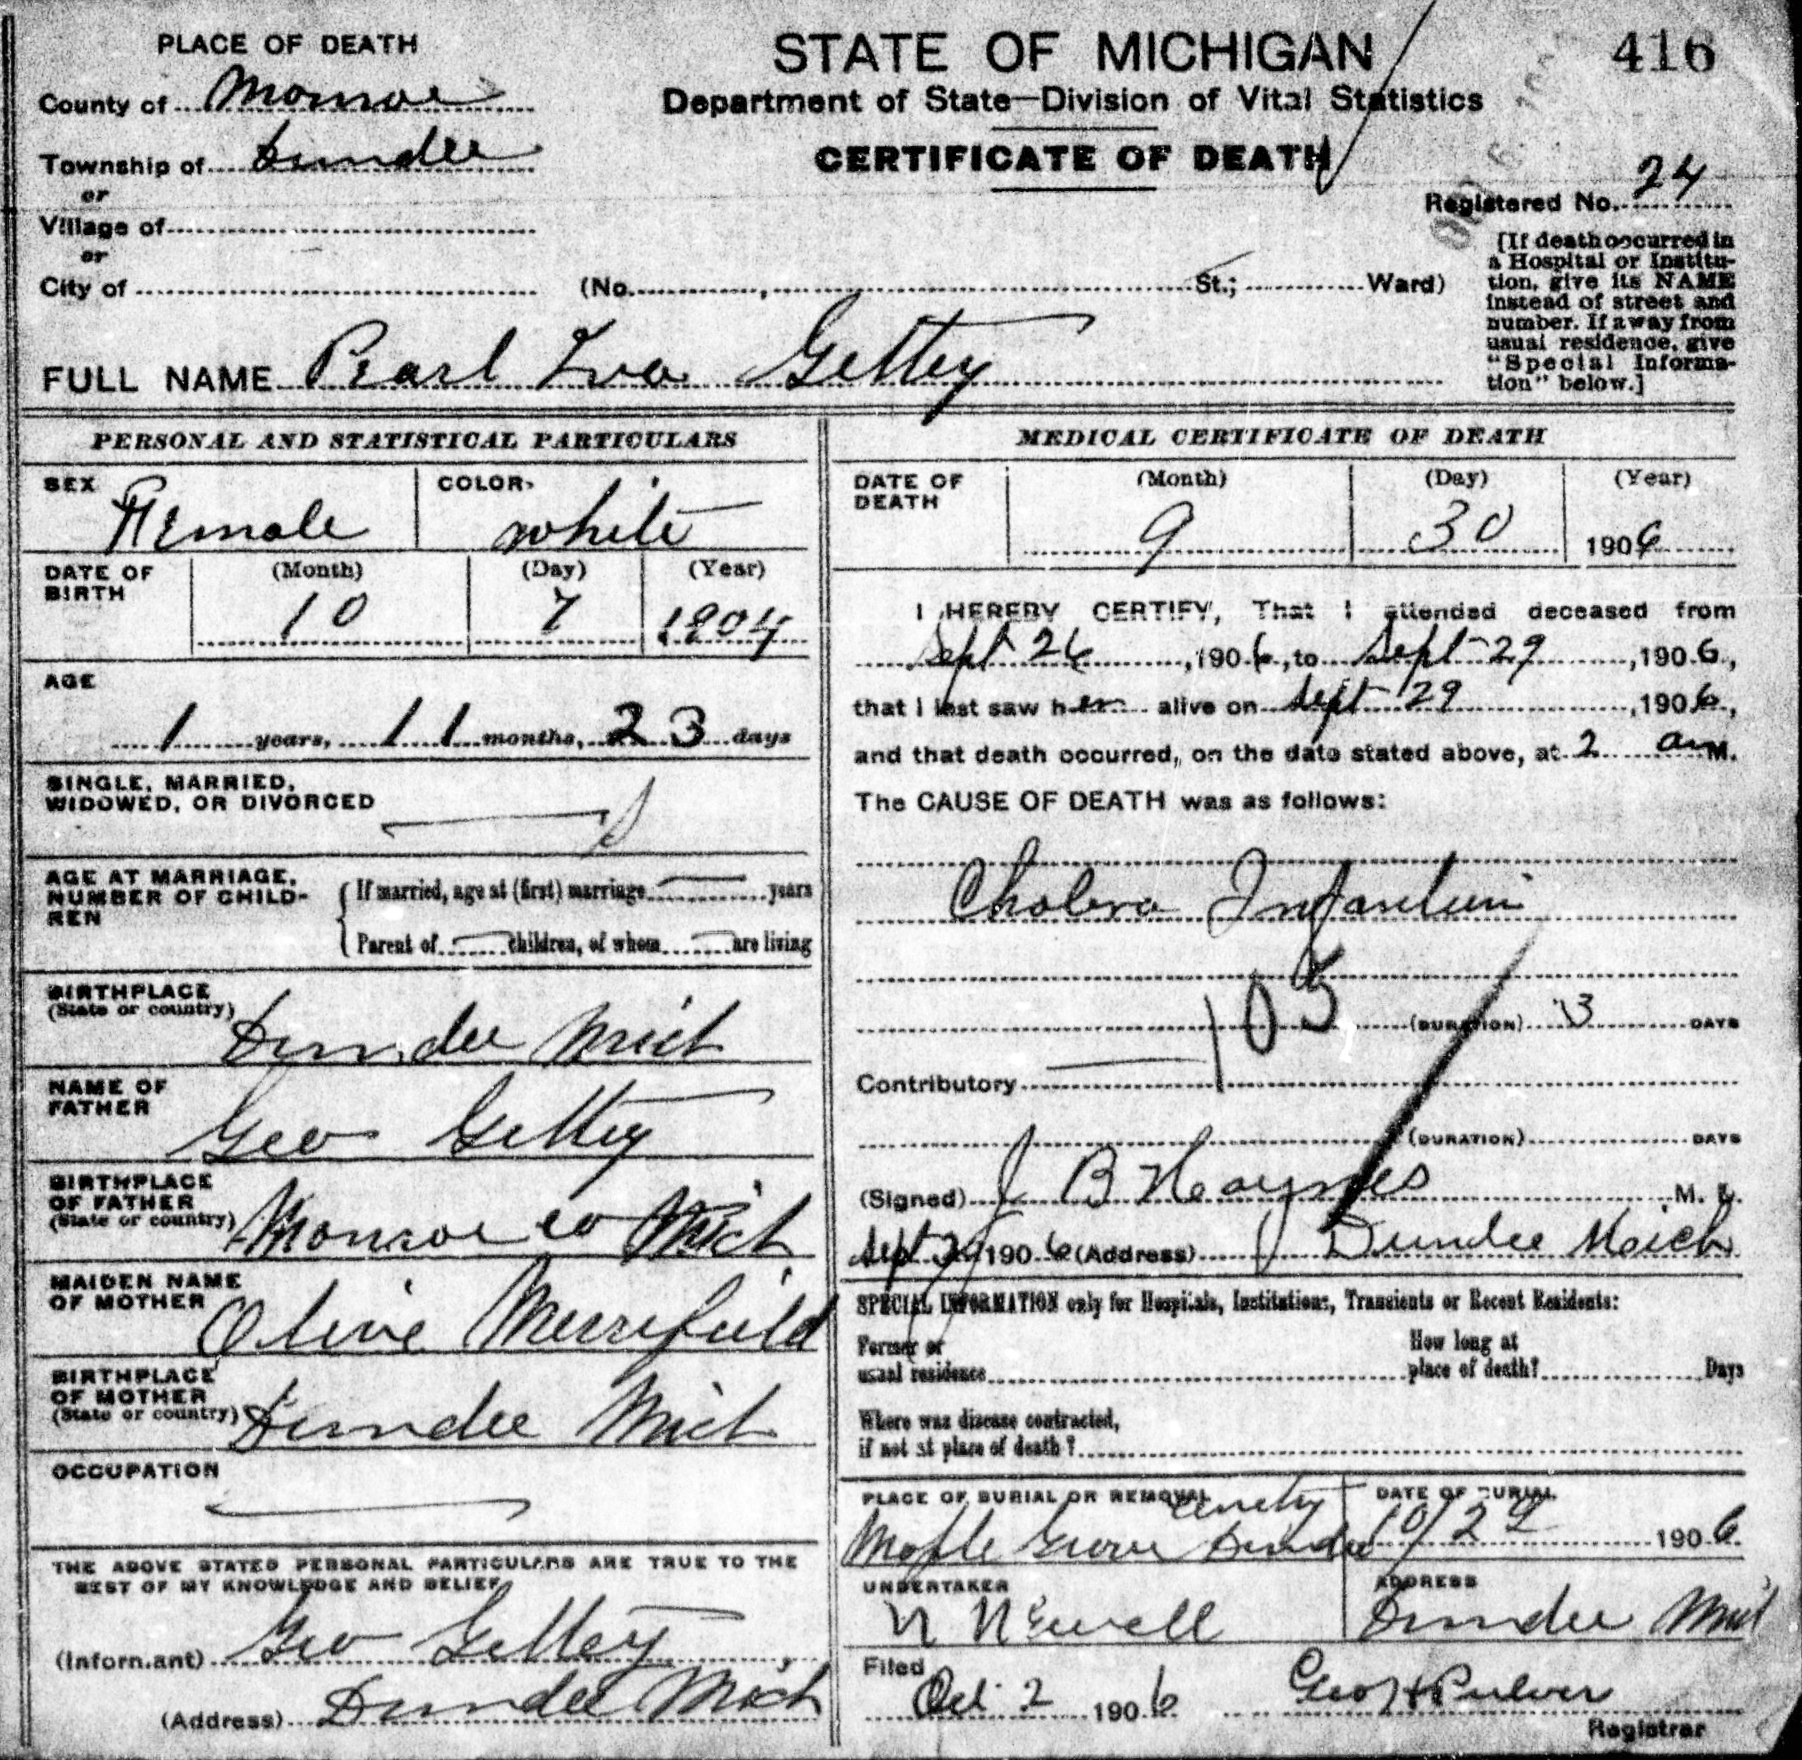 PLACE OF DEATH
County of Monroe
Township of Dundee
or
Village of
or
City of
STATE OF MICHIGAN
Department of State—Division of Vital Statistics
CERTIFICATE OF DEATH
416
Registered No. 24
(No. , St.; Ward)
[If death occurred in
a Hospital or Institu-
tion, give its NAME
instead of street and
number. If away from
usual residence, give
"Special Informa-
tion" below.]
FULL NAME Pearl Iva Gettey
PERSONAL AND STATISTICAL PARTICULARS
SEX Female
COLOR White
DATE OF BIRTH (Month) 10 (Day) 7 (Year) 1904
AGE
1 years, 11 months, 23 days
SINGLE, MARRIED,
WIDOWED, OR DIVORCED S
AGE AT MARRIAGE,
NUMBER OF CHILD-
REN
If married, age at (first) marriage years
Parent of children, of whom are living
BIRTHPLACE
(State or country) Dundee Mich
NAME OF
FATHER Geo Gettey
BIRTHPLACE
OF FATHER
(State or country) Monroe co Mich
MAIDEN NAME
OF MOTHER Olive Merrifield
BIRTHPLACE
OF MOTHER
(State or country) Dundee Mich
OCCUPATION
THE ABOVE STATED PERSONAL PARTICULARS ARE TRUE TO THE
BEST OF MY KNOWLEDGE AND BELIEF
(Informant) Geo Gettey
(Address) Dundee Mich
MEDICAL CERTIFICATE OF DEATH
DATE OF DEATH (Month) 9 (Day) 30 (Year) 1906
I HEREBY CERTIFY, That I attended deceased from
Sept 26, 1906, to Sept 29, 1906,
that I last saw her alive on Sept 29, 1906,
and that death occurred, on the date stated above, at 2 a M.
The CAUSE OF DEATH was as follows:
Cholera Infantum
105
(DURATION) 3 DAYS
Contributory
(DURATION) DAYS
(Signed) J B Haynes M. D.
Sept 1906 (Address) Dundee Mich
SPECIAL INFORMATION only for Hospitals, Institutions, Transients or Recent Residents:
Former or
usual residence
How long at
place of death? Days
Where was disease contracted,
if not at place of death?
PLACE OF BURIAL OR REMOVAL
Maple Grove Dundee
DATE OF BURIAL
10/2 1906
UNDERTAKER
N Newell
ADDRESS
Dundee Mich
Filed
Oct 2 1906 Geo H Pulver
Registrar